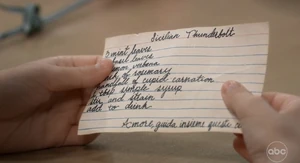 Sicilian Thunderbolt
mint leaves
leaves
verbena
of rosemary
of cupid carnation
simple syrup
and strain
add to drink
Amore, guida insieme questi
abc